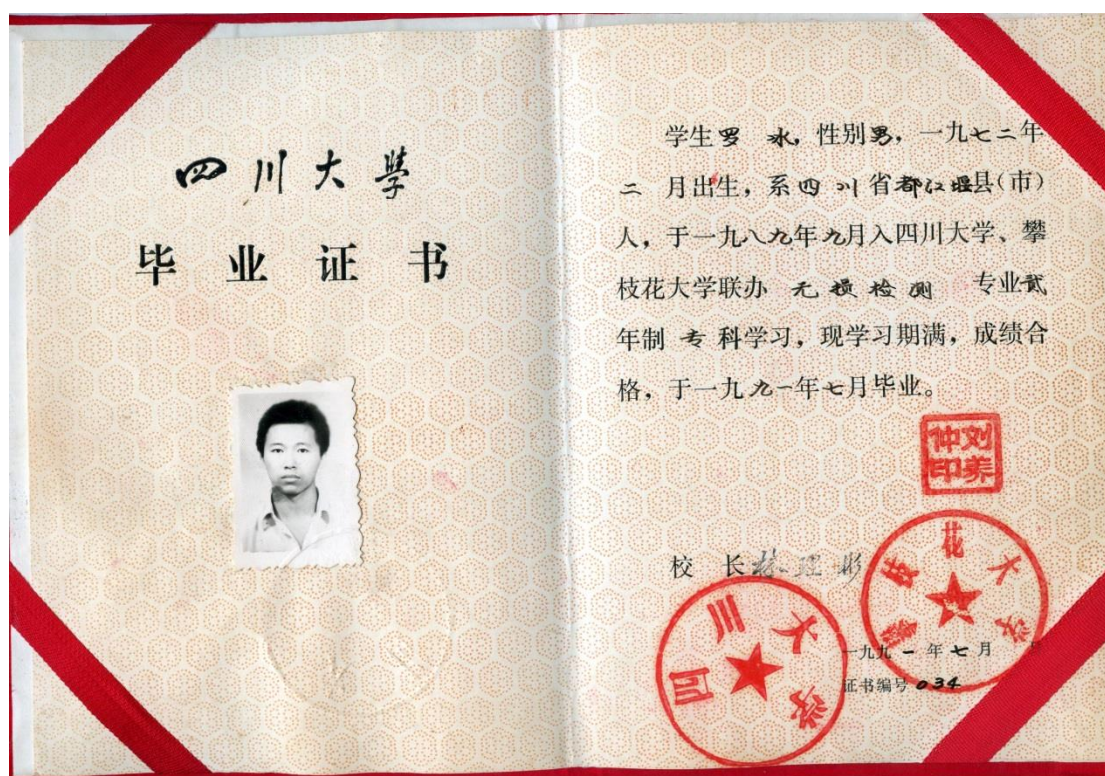 四川大學
毕业证书
学生罗 水,性别男,一九七二年
二月出生,系四川省都江堰县(市)
人,于一九八九年九月入四川大学、攀
枝花大学联办 无损检测 专业贰
年制 专 科学习,现学习期满,成绩合
格,于一九九一年七月毕业。
刘养仲印
校 长 林理彬
攀枝花大学
四川大学
一九九一年七月 日
证书编号 034